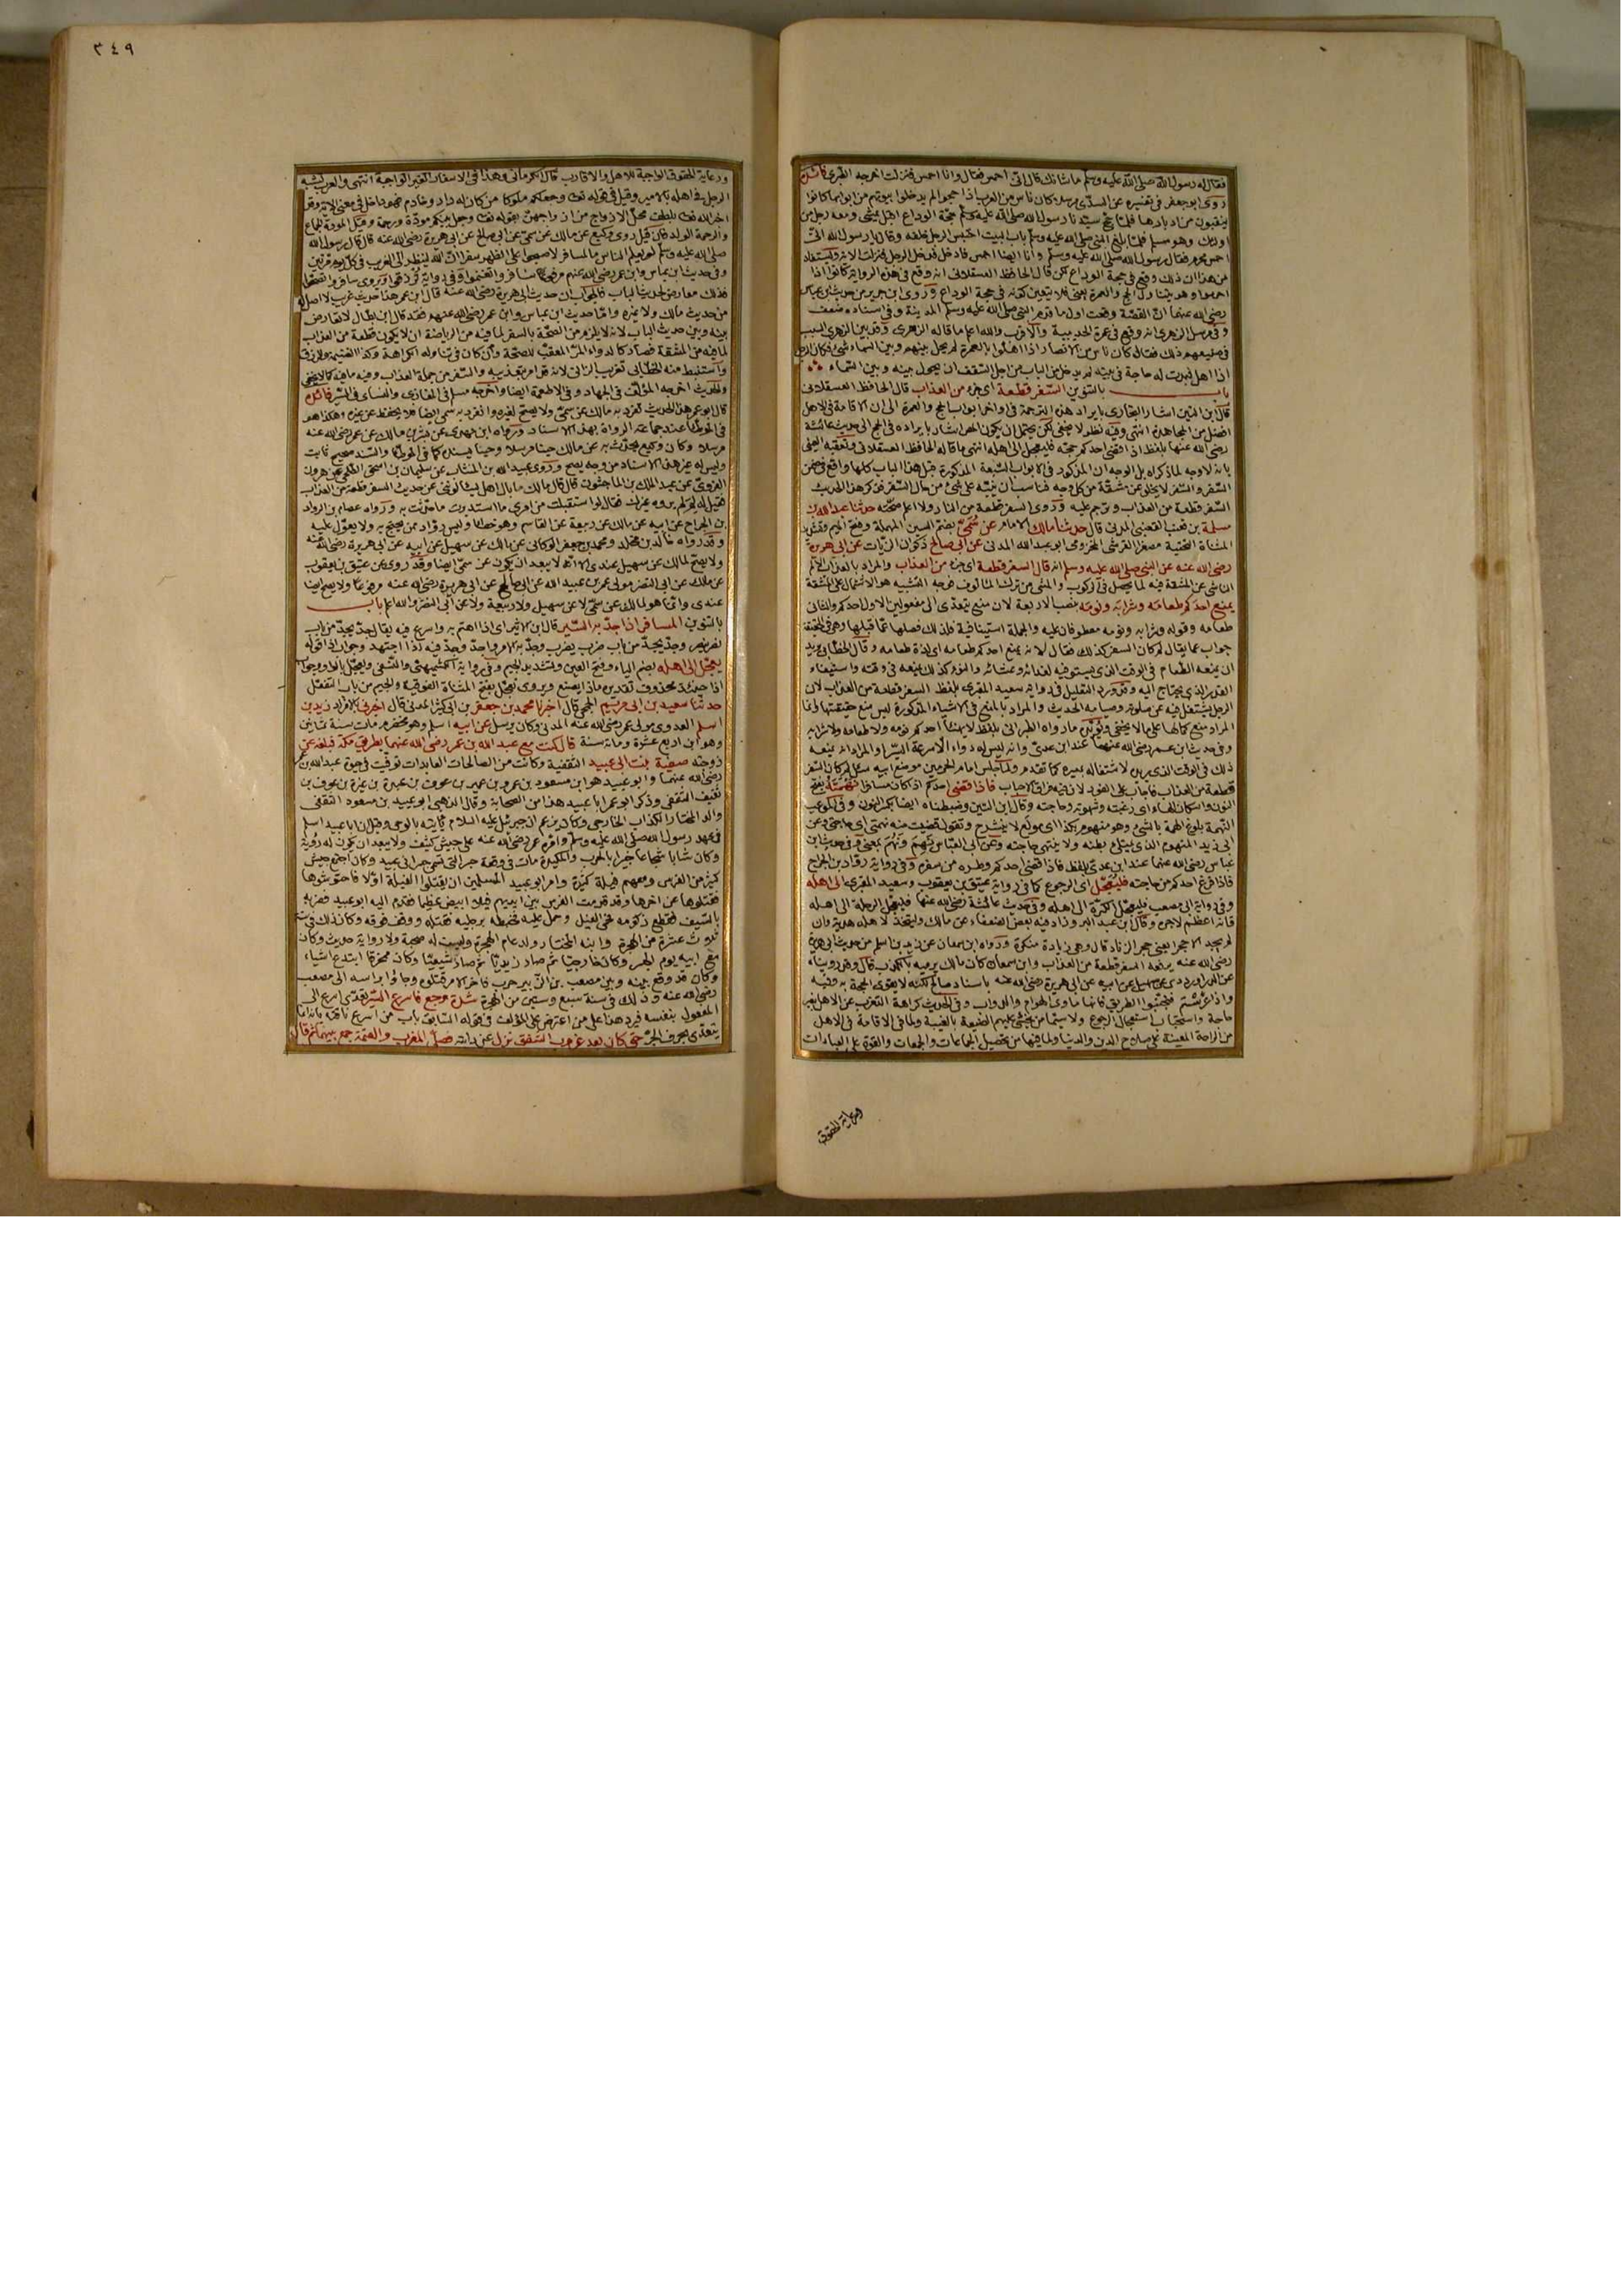 فقال له رسول الله صلى الله عليه وسلم ما شأنك قال انى احمس فقال وانا احمس فنزلت اخرجه الطبرى
روى ابو جعفر فى تفسيره عن السدى كان ناس من العرب اذا حجوا لم يدخلوا بيوتهم من ابوابها كانوا
ينقبون من ادبارها فلما حج سيدنا رسول الله صلى الله عليه وسلم حجة الوداع اقبل يمشى ومعه رجل من
اولئك وهو مسلم فلما بلغ النبى صلى الله عليه وسلم باب البيت احتبس الرجل خلفه وقال يا رسول الله انى
احمس فقال رسول الله صلى الله عليه وسلم وأنا ايضا احمس فادخل فدخل الرجل فنزلت الاية
من هذا ان ذلك وقع فى حجة الوداع لكن قال الحافظ العسقلانى انه وقع فى هذه الرواية كانوا اذا
احرموا وهو يتناول الحج والعمرة يعنى فلا يتعين كونه فى حجة الوداع وروى ابن جرير من حديث ابن عباس
رضى الله عنهما ان القصة وقعت اول ما قدم النبى صلى الله عليه وسلم المدينة وفى اسناده ضعف
وفى مرسل الزهرى انه وقع فى عمرة الحديبية والاقرب والله اعلم ما قاله الزهرى وقد بين الزهرى السبب
فى صنيعهم ذلك فقال كان ناس من الانصار اذا اهلوا بالعمرة لم يحل بينهم وبين السماء شئ فكان الرجل
اذا اهل فبدت له حاجة فى بيته لم يدخل من الباب من اجل السقف ان يحول بينه وبين السماء
باب بالتنوين السفر قطعة اى جزء من العذاب قال الحافظ العسقلانى
قال ابن المنير اشار البخارى بايراد هذه الترجمة فى اواخر ابواب الحج والعمرة الى ان الاقامة فى الاهل
افضل من المجاهدة انتهى وفيه نظر لا يخفى لكن يحتمل ان يكون اشار بايراده فى الحج الى حديث عائشة
رضى الله عنها بلفظ اذا قضى احدكم حجته فليعجل الى اهله انتهى ما قاله الحافظ العسقلانى وتعقبه العينى
السفر والسفر لا يخلو عن مشقة من كل وجه فناسب ان ينبه على شئ من حال السفر فذكر هذا الحديث
السفر قطعة من العذاب وترجم عليه وروى السفر قطعة من النار ولا اعلم صحته حدثنا عبد الله بن
مسلمة بن قعنب القعنبى المدنى قال حدثنا مالك الامام عن سمى بضم السين المهملة وفتح الميم وتشديد
المثناة التحتية مصغر القرشى المخزومى ابو عبد الله المدنى عن ابى صالح ذكوان الزيات عن ابى هريرة
رضى الله عنه عن النبى صلى الله عليه وسلم انه قال السفر قطعة اى جزء من العذاب والمراد بالعذاب الالم
الناشى عن المشقة فيه لما يحصل فى الركوب والمشى من ترك المألوف فوجه التشبيه هو الاشتمال على المشقة
يمنع احدكم طعامه وشرابه ونومه بنصب الاربعة لان منع يتعدى الى مفعولين الاول احدكم والثانى
طعامه وقوله وشرابه ونومه معطوفان عليه والجملة استينافية فلذلك فصلها عما قبلها وهى فى الحقيقة
جواب عما يقال لم كان السفر كذلك فقال لانه يمنع احدكم طعامه اى لذة طعامه وقال الخطابى يريد
ان يمنعه الطعام فى الوقت الذى يستوفيه لغدائه وعشائه والنوم كذلك يمنعه فى وقته واستيفاء
القدر الذى يحتاج اليه وقد ورد التعليل فى رواية سعيد المقبرى بلفظ السفر قطعة من العذاب لان
الرجل يشتغل فيه عن صلوته وصيامه الحديث والمراد بالمنع فى الاشياء المذكورة ليس منع حقيقتها وانما
المراد منع كمالها على ما لا يخفى ويؤيده ما رواه الطبرانى بلفظ لا يهنأ احدكم نومه ولا طعامه ولا شرابه
وفى حديث ابن عمر رضى الله عنهما عند ابن عدى وانه ليس له دواء الا سرعة السير او المراد انه يمنعه
ذلك فى الوقت الذى يريد لاشتغاله بسيره كما تقدم ولما جلس امام الحرمين موضع ابيه سئل لم كان السفر
قطعة من العذاب فاجاب على الفور لان فيه فراق الاحباب فاذا قضى احدكم اذا كان مسافرا نهمته بفتح
النون واسكان الهاء اى رغبته وشهوته وحاجته وقال ابن التين وضبطناه ايضا بكسر النون وفى
النهمة بلوغ الهمة بالشئ وهو منهوم بكذا اى مولع لا يشبع وتقول قضيت منه نهمتى اى حاجتى وعن
ابى زيد المنهوم الذى يمتلئ بطنه ولا ينتهى حاجته وعن ابى العباس نهم ونهم بمعنى وفى حديث ابن
عباس رضى الله عنهما عند ابن عدى بلفظ فاذا قضى احدكم وطره من سفره وفى رواية رواد بن الجراح
فاذا فرغ احدكم من حاجته فليعجل اى الرجوع كما فى رواية عتيق بن يعقوب وسعيد المقبرى الى اهله
وفى رواية ابى مصعب فليعجل الكرة الى اهله وفى حديث عائشة رضى الله عنها فليعجل الرحلة الى اهله
فانه اعظم لاجره وقال ابن عبد البر وزاد فيه بعض الضعفاء عن مالك وليتخذ لاهله هدية وان
لم يجد الا حجرا يعنى حجر الزناد قال وهى زيادة منكرة ورواه ابن سمعان عن زيد بن اسلم من حديث ابى هريرة
رضى الله عنه يرفعه السفر قطعة من العذاب وابن سمعان كان مالك يرميه بالكذب قال وقد رويناه
عن الدراوردى عن سهيل عن ابيه عن ابى هريرة رضى الله عنه باسناد صالح لكنه لا يقوى الحجة به وفيه
واذا عرستم فتجنبوا الطريق فانها مأوى الهوام والدواب وفى الحديث كراهة التغرب عن الاهل بغير
حاجة واستحباب استعجال الرجوع ولا سيما من يخشى عليهم الضيعة بالغيبة ولما فى الاقامة فى الاهل
من الراحة المعينة على صلاح الدين والدنيا ولما فيها من تحصيل الجماعات والجمعات والقوة على العبادات
ورعاية الحقوق
٣٤٩
ورعاية الحقوق الواجبة للاهل والاقارب قال الكرمانى وهذا فى الاسفار الغير الواجبة انتهى والعرب تشبه
الرجل فى اهله بالامير وقيل فى قوله تعالى وجعلكم ملوكا من كان له دار وخادم فهو داخل فى معنى الاية وقد
والرحمة الولد فان قيل روى وكيع عن مالك عن سمى عن ابى صالح عن ابى هريرة رضى الله عنه قال قال رسول الله
صلى الله عليه وسلم لو يعلم الناس ما للمسافر لاصبحوا على الظهر سفرا ان الله لينظر الى الغريب فى كل يوم مرتين
وفى حديث ابن عباس وابن عمر رضى الله عنهم مرفوعا سافروا تغنموا وفى رواية ترزقوا ويروى سافروا تصحوا
فذلك معارض لحديث الباب فالجواب ان حديث ابى هريرة رضى الله عنه قال ابن عمر هذا حديث غريب لا اصل له
من حديث مالك ولا غيره واما حديث ابن عباس وابن عمر رضى الله عنهم فقد قال ابن بطال لا تعارض
بينه وبين حديث الباب لانه لا يلزم من الصحة بالسفر لما فيه من الرياضة ان لا يكون قطعة من العذاب
لما فيه من المشقة فصار كالدواء المر المعقب للصحة وان كان فى تناوله الكراهة وكذا الغنيمة والرزق
واستنبط منه الخطابى تغريب الزانى لانه قد امر بتعذيبه والسفر من جملة العذاب وفيه ما فيه كما لا يخفى
والحديث اخرجه المؤلف فى الجهاد وفى الاطعمة ايضا واخرجه مسلم فى المغازى والنسائى فى السير
قال ابو عمر هذا الحديث تفرد به مالك عن سمى ولا يصح لغيره وانفرد به سمى ايضا فلا يحفظ عن غيره وهكذا هو
فى الموطأ عند جماعة الرواة بهذا الاسناد ورواه ابن مهدى عن بشر بن مالك عن عمر رضى الله عنه
مرسلا وكان وكيع يحدث به عن مالك حينا مرسلا وحينا يسنده كما فى الموطأ والسند صحيح ثابت
وليس له غير هذا الاسناد من وجه يصح وروى عبيد الله بن المنتاب عن سليمان بن اسحق الطلحى عن هرون
الفروى عن عبد الملك بن الماجشون قال قال مالك ما بال اهل يسألونى عن حديث السفر قطعة من العذاب
فقيل له لم يروه غيرك فقال لو استقبلت من امرى ما استدبرت ما حدثت به ورواه عصام بن الرواد
بن الجراح عن ابيه عن مالك عن ربيعة عن القاسم وهو خطأ وليس رواد ممن يحتج به ولا يعول عليه
وقد رواه خالد بن مخلد ومحمد بن جعفر الوركانى عن مالك عن سهيل عن ابيه عن ابى هريرة رضى الله عنه
ولا يصح لمالك عن سهيل عندى الا انه لا يبعد ان يكون عن سمى ايضا وقد روى عن عتيق بن يعقوب
عن مالك عن ابى النضر مولى عمر بن عبيد الله عن ابى صالح عن ابى هريرة رضى الله عنه مرفوعا ولا يصح ايضا
عندى وانما هو لمالك عن سمى لا عن سهيل ولا ربيعة ولا عن ابى النضر والله اعلم باب
بالتنوين المسافر اذا جد به السير قال ابن الاثير اى اذا اهتم به واسرع فيه يقال جد يجد من باب
نصر ينصر وجد يجد من باب ضرب يضرب وجد به الامر واجد وجد فيه اذا اجتهد وجواب اذا قوله
يعجل الى اهله بضم الياء وفتح العين وتشديد الجيم وفى رواية الكشميهنى والنسفى ويعجل بالواو وجواب
اذا حينئذ محذوف تقديره ماذا يصنع ويروى تعجل بفتح المثناة الفوقية والجيم من باب التفعل
حدثنا سعيد بن ابى مريم الجمحى قال اخبرنا محمد بن جعفر بن ابى كثير المدنى قال اخبرنى بالافراد زيد بن
اسلم العدوى مولى عمر رضى الله عنه المدنى وكان يرسل عن ابيه اسلم وهو مخضرم مات سنة ثمانين
وهو ابن اربع عشرة ومائة سنة قال كنت مع عبد الله بن عمر رضى الله عنهما بطريق مكة فبلغه عن
زوجته صفية بنت ابى عبيد الثقفية وكانت من الصالحات العابدات توفيت فى حيوة عبد الله بن عمر
رضى الله عنهما وابو عبيد هو ابن مسعود بن عمرو بن عمير بن عوف بن عقدة بن غيرة بن عوف بن
ثقيف الثقفى وذكر ابو عمر ابا عبيد هذا من الصحابة وقال الذهبى ابو عبيد بن مسعود الثقفى
والد المختار الكذاب الخارجى وكان يزعم ان جبرئيل عليه السلام يأتيه بالوحى وقيل ان ابا عبيد اسلم
فى عهد رسول الله صلى الله عليه وسلم وامره عمر رضى الله عنه على جيش كثيف ولا يبعد ان يكون له رؤية
وكان شابا شجاعا خبيرا بالحرب والمكيدة مات فى وقعة جسر التى تسمى جسر ابى عبيد وكان اجتمع جيش
كثير من الفرس ومعهم فيلة كثيرة وامر ابو عبيد المسلمين ان يقتلوا الفيلة اولا فاحتوشوها
فقتلوها عن اخرها وقد قدمت الفرس بين ايديهم فيلا ابيض عظيما فقدم اليه ابو عبيد فضربه
بالسيف فقطع زلومه فحمى الفيل وحمل عليه فخبطه برجليه فقتله ووقف فوقه وكان ذلك فى سنة
ثلاث عشرة من الهجرة وابنه المختار ولد عام الهجرة وليست له صحبة ولا رواية حديث وكان
مع ابيه يوم الجسر وكان خارجيا ثم صار زيديا ثم صار شيعيا وكان ممخرقا ابتدع اشياء
وكان قد وقع بينه وبين مصعب بن الزبير حرب فاخر الامر قتلوه وجاؤا براسه الى مصعب
رضى الله عنه وذلك فى سنة سبع وستين من الهجرة شدة وجع فاسرع السير تعدى اسرع الى
المفعول بنفسه فيرد هذا على من اعترض على المؤلف فى قوله السابق باب من اسرع ناقته بانه انما
يتعدى بحرف الجر حتى كان بعد غروب الشفق نزل عن دابته فصلى المغرب والعتمة جمع بينهما ثم قال